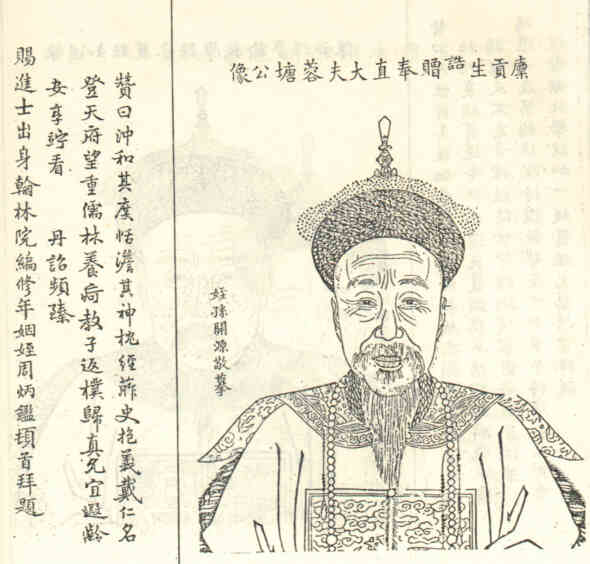 廩貢生誥贈奉直大夫蓉塘公像
姪孫源敬摹
贊曰沖和其度恬澹其神枕經葄史抱義戴仁名
登天府望重儒林養疴教子返樸歸真允宜遐齡
安享竚看 丹詔頻臻
賜進士出身翰林院編修年姻姪周炳鑑頓首拜題